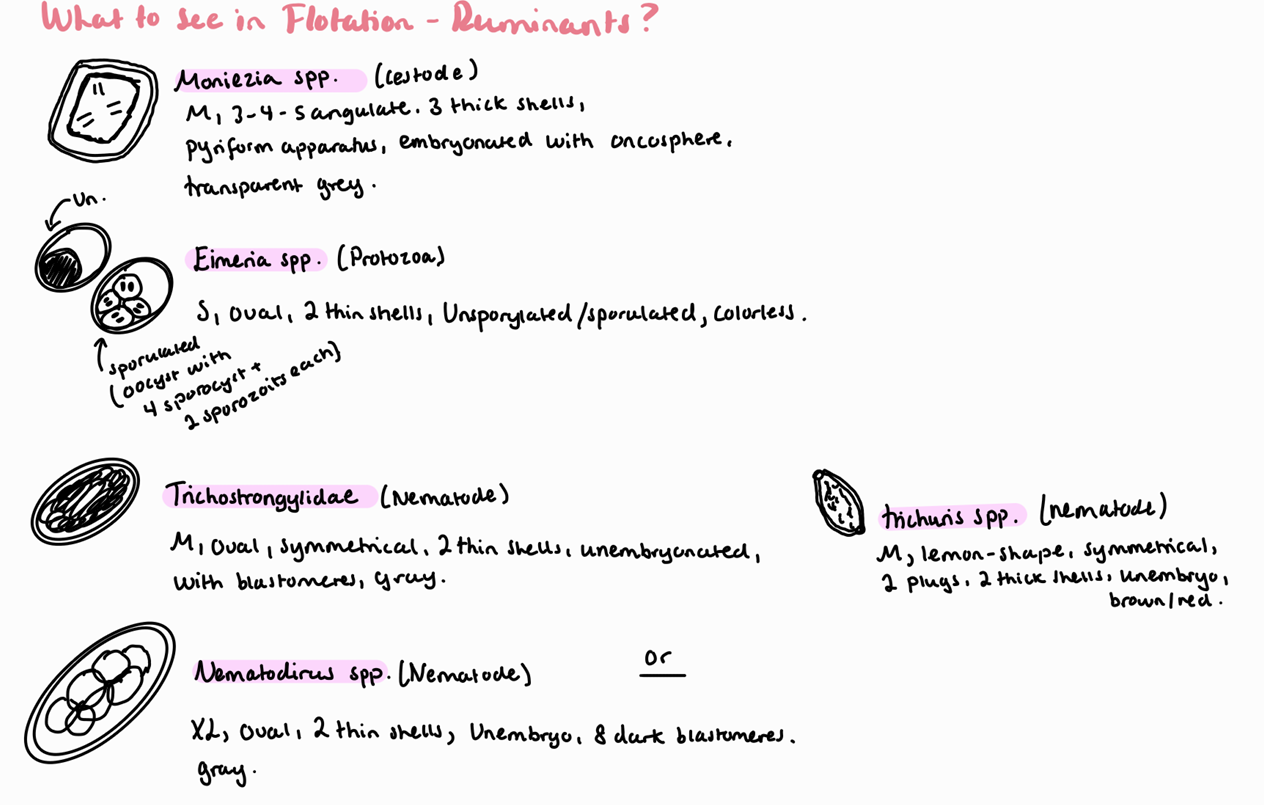 What to see in Flotation - Ruminants?
Moniezia spp. (cestode)
M, 3-4-5 angulate. 3 thick shells,
pyriform apparatus, embryonated with oncosphere.
transparent grey.
Un.
Eimeria spp. (Protozoa)
S, oval, 2 thin shells, Unsporylated/sporulated, colorless.
sporulated
(oocyst with
4 sporocyst +
2 sporozoits each)
Trichostrongylidae (Nematode)
M, oval, symmetrical. 2 thin shells, unembryonated,
with blastomeres, gray.
trichuris spp. (nematode)
M, lemon-shape, symmetrical,
2 plugs, 2 thick shells, unembryo,
brown/red.
Nematodirus spp. (Nematode)
or
XL, oval, 2 thin shells, Unembryo, 8 dark blastomeres.
gray.